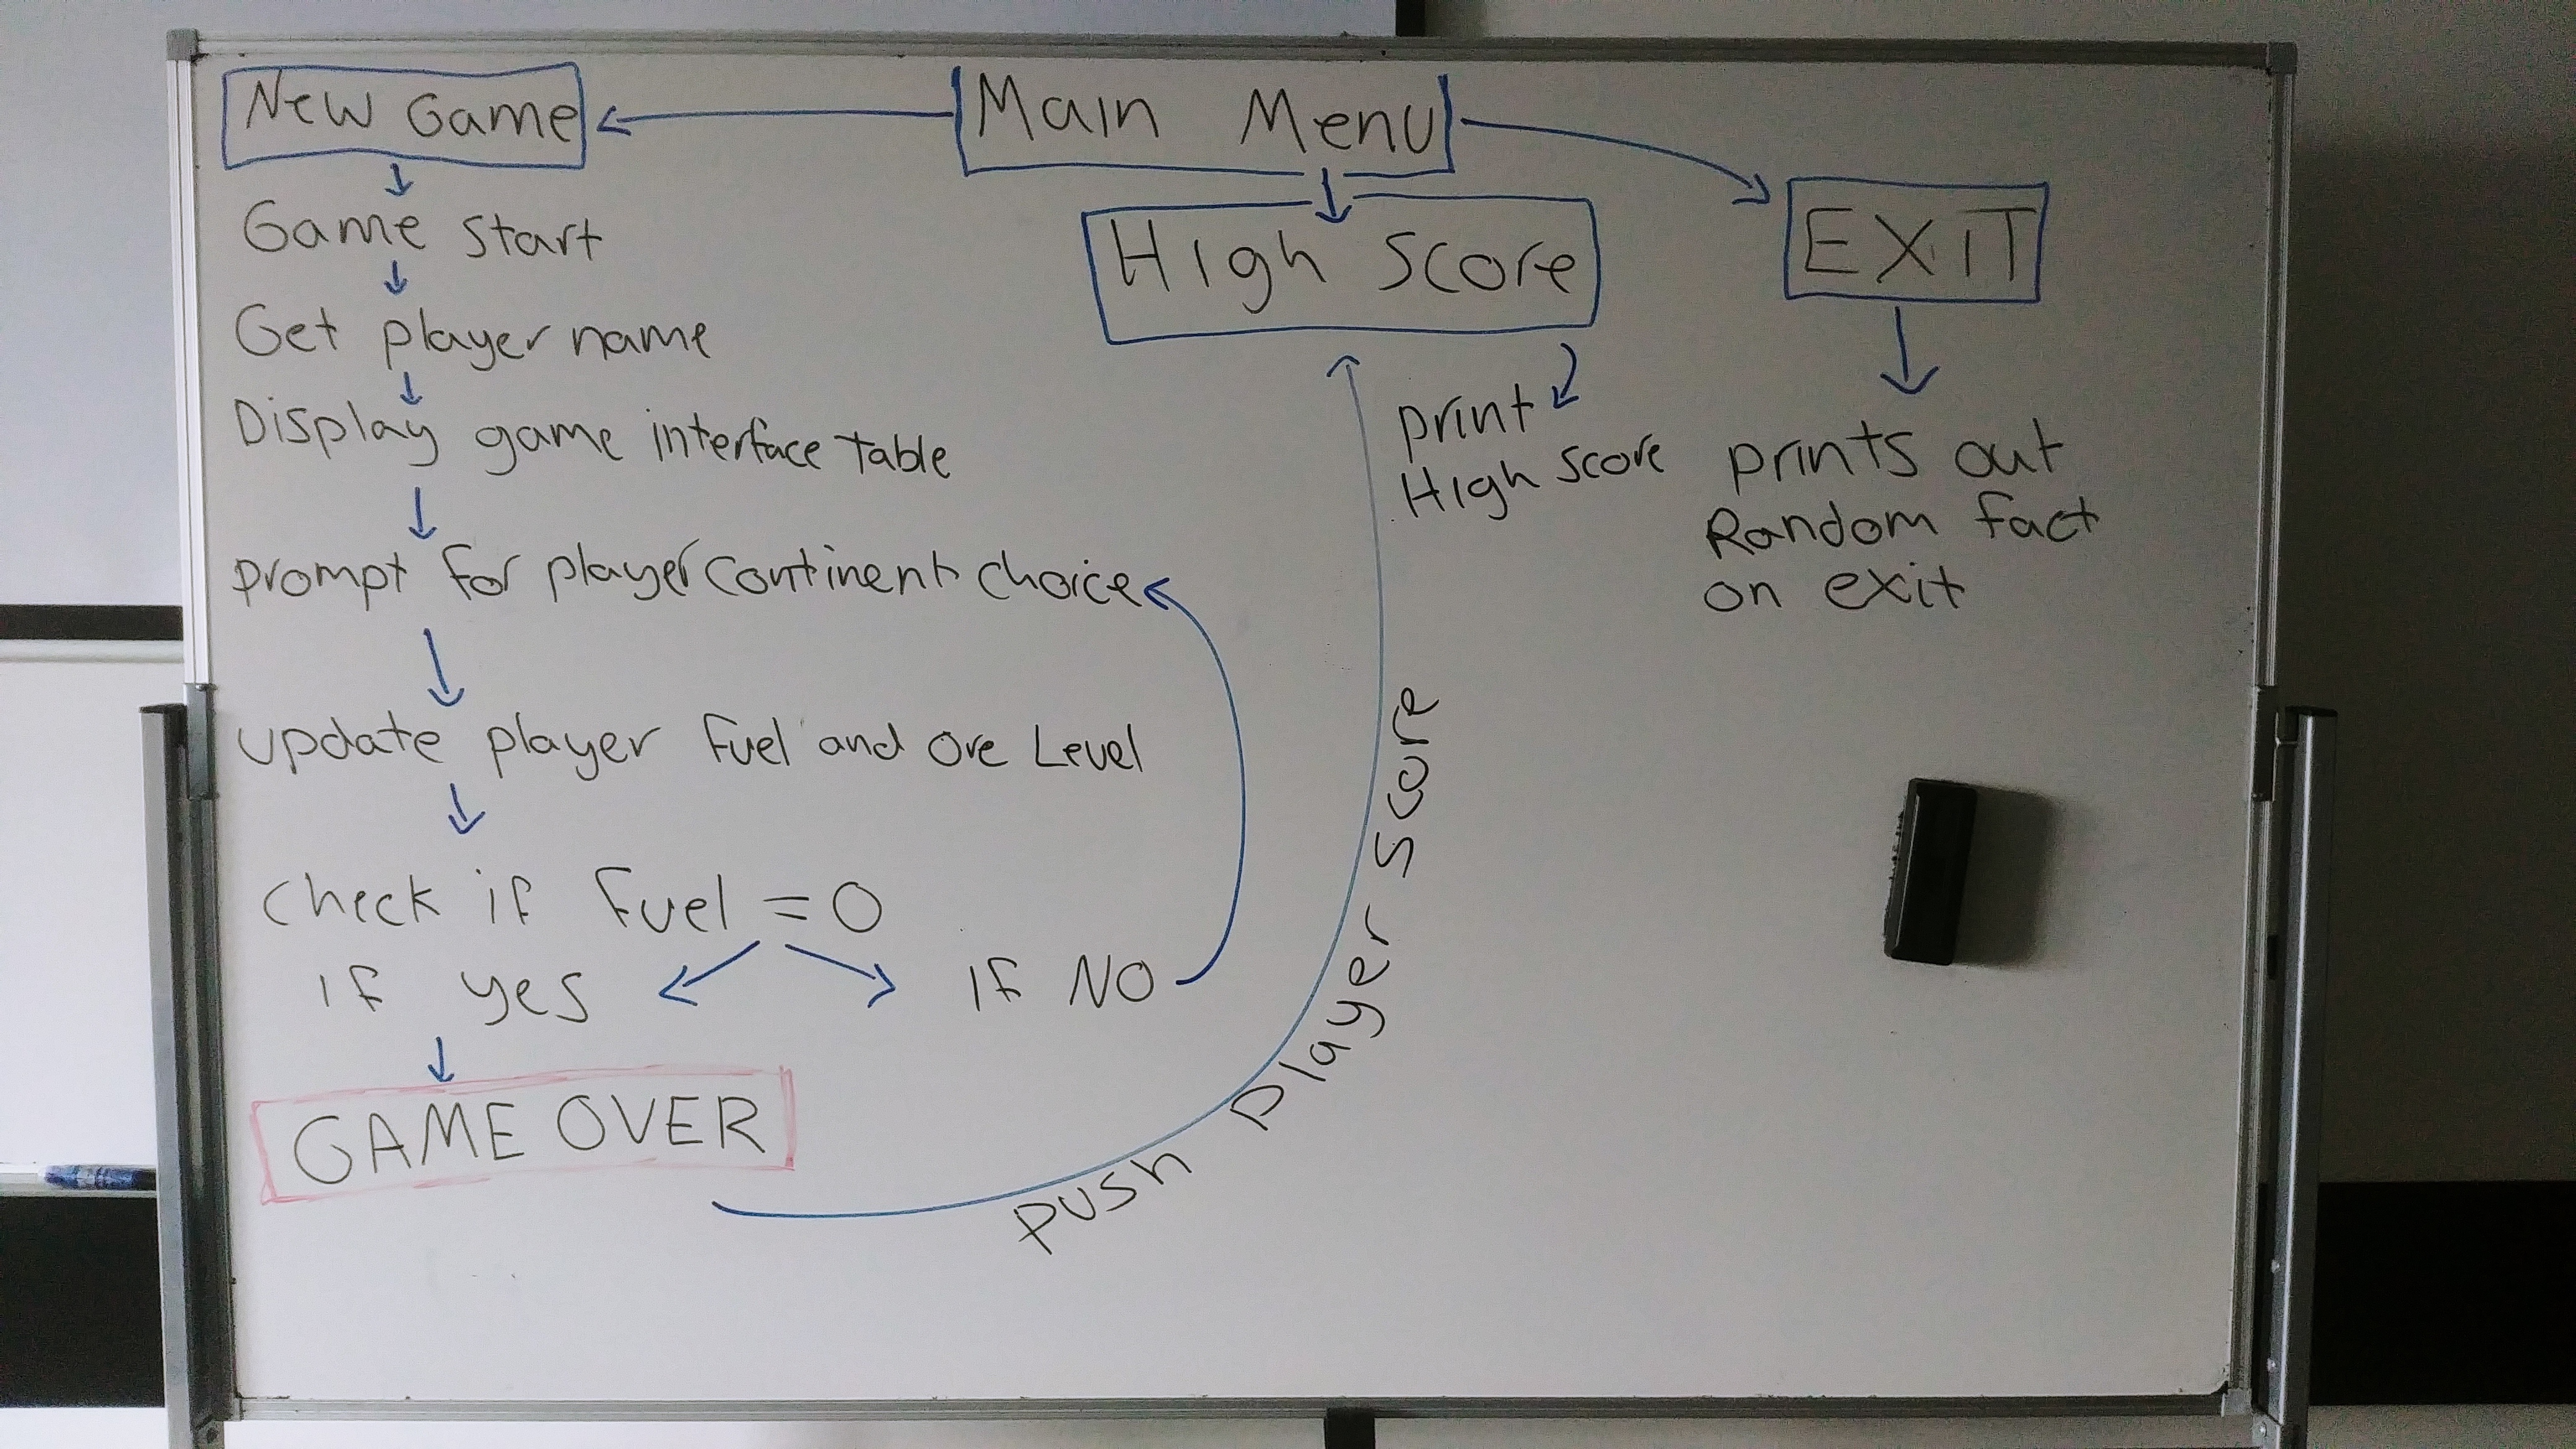 New Game
Main Menu
Game Start
Get player name
Display game interface table
prompt for player continent choice
update player fuel and ore Level
check if fuel = 0
if yes
IF NO
GAME OVER
push player score
High Score
print
High Score
EXiT
prints out
Random fact
on exit